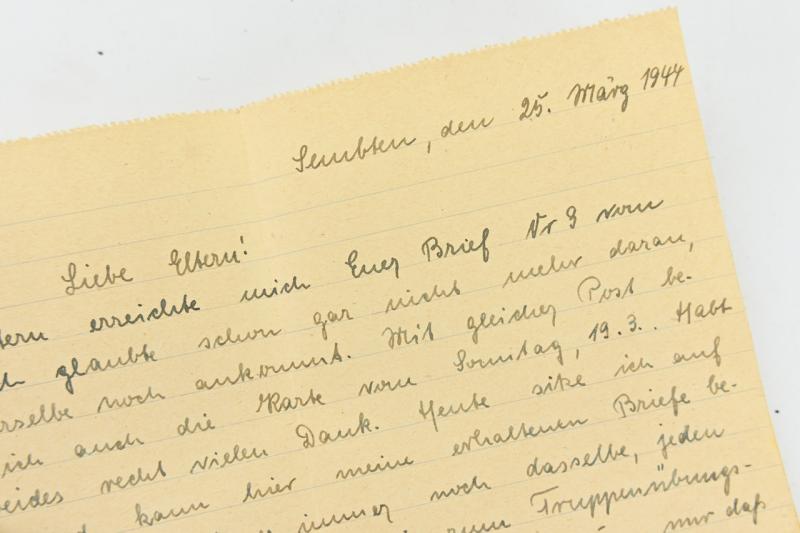 Sembten, den 25. März 1944
Liebe Eltern!
tern erreichte mich Euer Brief Nr 9 vom
ch glaubte schon gar nicht mehr daran,
rselbe noch ankommt. Mit gleicher Post be-
ich auch die Karte vom Sonntag, 19.3.. Habt
eides recht vielen Dank. Heute sitze ich auf
kann hier meine erhaltenen Briefe be-
immer noch dasselbe, jeden
zum Truppenübungs-
nur daß